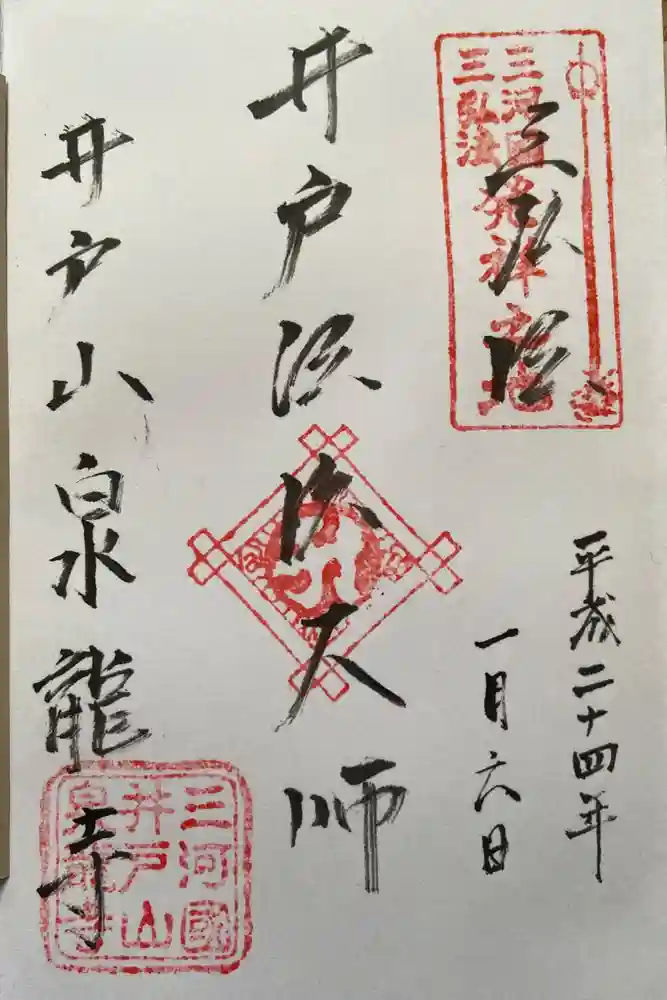 三弘法
三河國
三弘法
発祥之地
平成二十四年
一月六日
井戸弘法大師
井戸山泉龍寺
三河國
井戸山
泉龍寺